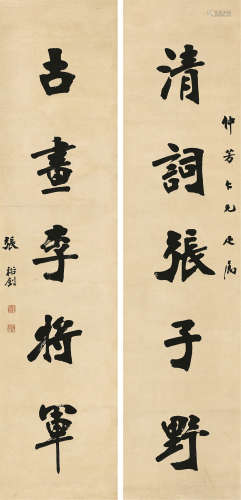 清詞張子野
仲芳仁兄
古畫李將軍
張裕釗